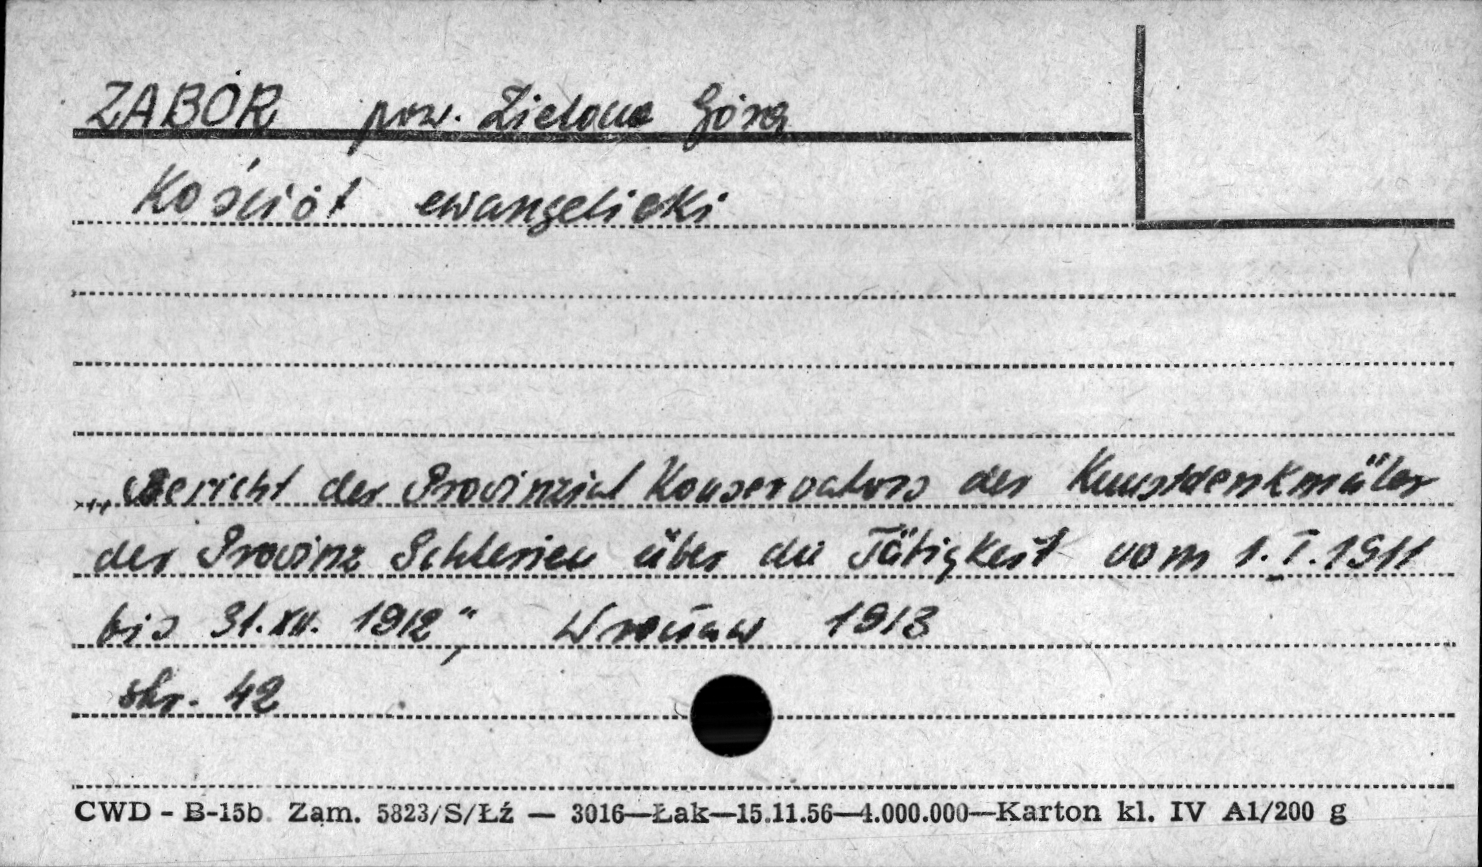 ZABÓR pow. Zielona Góra
Kościół ewangelicki
„Bericht des Provinzial Konservators der Kunstdenkmäler
der Provinz Schlesien über die Tätigkeit vom 1.I.1911
bis 31.XII. 1912", Wrocław 1913
str. 42
CWD - B-15b Zam. 5823/S/Łź — 3016—Łak—15.11.56—4.000.000—Karton kl. IV A1/200 g